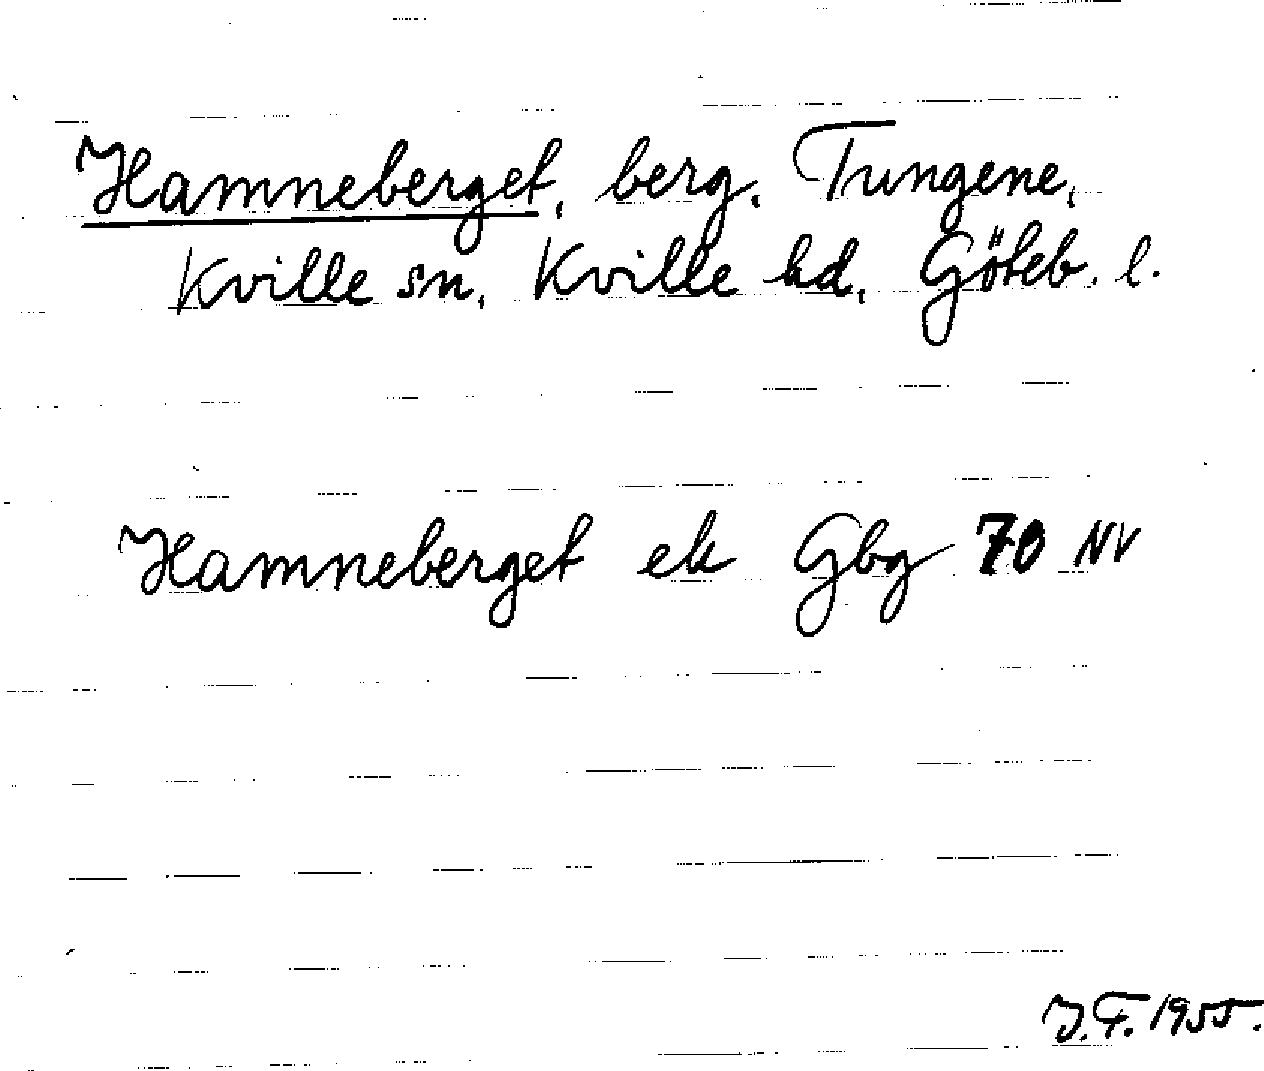 Hamneberget, berg, Tungene,
Kville sn, Kville hd, Göteb. l.
Hamneberget ek Gbg 70 NV
J.F. 1955.